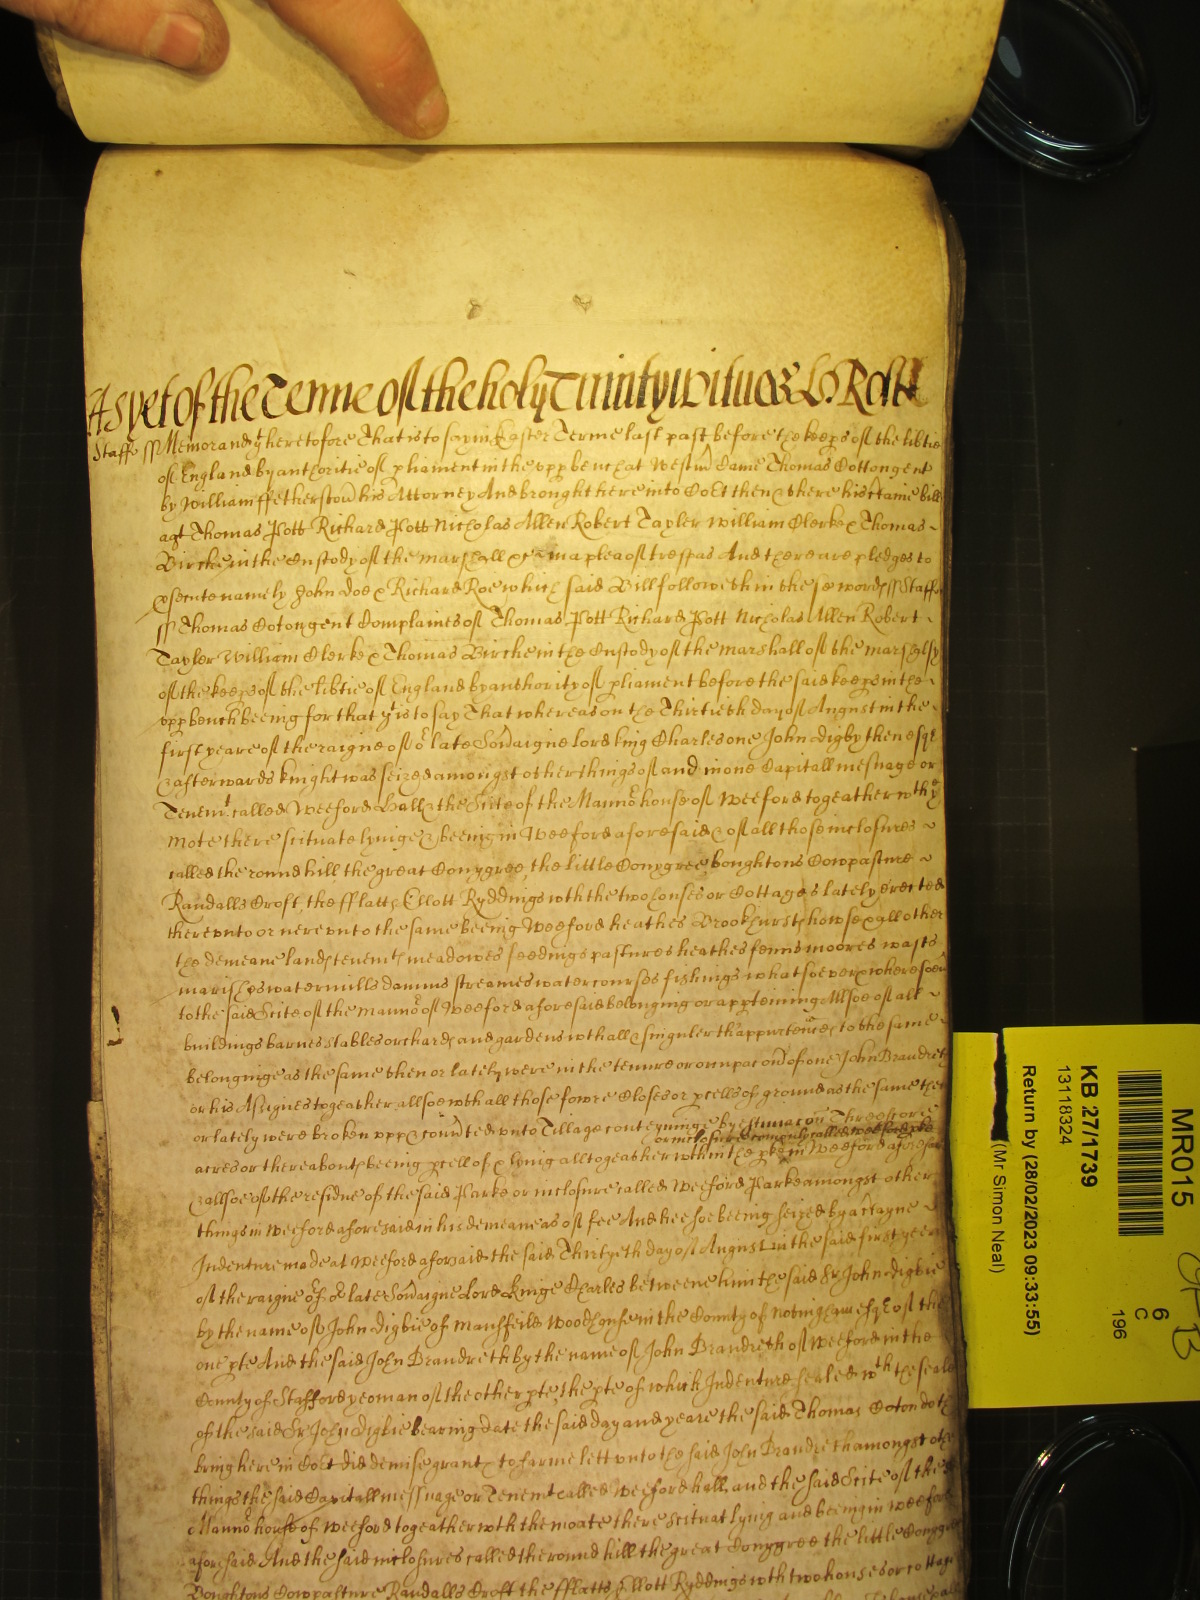 As yet of the Terme of the holy Trinity witnes H Rolle
Staff ss Memorand yt heretofore That is to say in Easter Terme last past before the keeps of the libtie
of England by authoritie of pliament in the vpp bench at Westm Came Thomas Cotton gent
by William Fetherston his Attorney And brought here into Cort then & there his certaine bill
agt Thomas Pott Richard Pott Nicholas Allen Robert Tayler William Clerke & Thomas
Birche in the Custody of the marshall &c in a plea of trespas And there are pledges to
psecute namely John Doe & Richard Roe which said Bill followeth in these words ss Staff
ss Thomas Coton gent Complaines of Thomas Pott Richard Pott Nicholas Allen Robert
Tayler William Clerke & Thomas Birche in the Custody of the marshall of the marshalsy
of the keeps of the libtie of England by authority of pliament before the said keeps in the
vpp bench beeing for that yt is to say That whereas on the Thirtieth day of August in the
first yeare of the raigne of or late Sovaigne lord king Charles one John Digby then esqr
& afterwards knight was seized amongst other things of and in one Capitall mesuage or
Tenemt called Weeford Hall & the Scite of the Mannor house of Weeford togeather wth ye
mote there scituate lyinge & beeing in Weeford aforesaid & of all those inclosures
called the round hill the great Connygree the little Connygree boughtons Cowpasture
Randalls Croft, the fflatts Ellott Ryddings wth the two houses or Cottages lately erected
therevnto or nere vnto the same beeing Weeford heathes Brookhurst howse & all other
the demeane lands tenemts meadowes feedings pastures heathes fenns moores wasts
marishes watermills damms streames watercourses fishings whatsoever & wheresoevr
to the said Scite of the mannor of Weeford aforesaid belonging or appteining Allsoe of all
buildings barnes stables orchards and gardens wth all & singuler thappurtences to the same
belonginge as the same then or lately were in the tenure or occupacon of one John Brandreth
or his Assignes togeather allsoe wth all those fowre Closes or pcells of ground as the same then
or lately were broken vpp & convted vnto Tillage conteyninge by estimacon Threescore
or inclosure comonly called weeford pke
acres or thereabouts beeing pcell of & lyinig alltogeather wthin the pke in Weeford aforesaid
& allsoe of the residue of the said Parke or inclosure called Weeford Parke amongst other
things in Weeford aforesaid in his demeane as of fee And hee soe beeing seized by a ctayne
Indenture made at Weeford aforsaid the said Thirtyeth day of August in the said first yeare
of the raigne of or late Sovaigne Lord Kinge Charles betweene him the said Sr John Digbie
by the name of John Digbie of Mansfeild Woodhouse in the County of Nottingham esqr of the
one pte And the said John Brandreth by the name of John Brandreth of Weeford in the
County of Stafford yeoman of the other pte, the pte of which Indenture sealed wth the seale
of the said Sr John Digbie bearing date the said day and yeare the said Thomas Coton doth
bring here in Cort did demise grant & to farme lett vnto the said John Brandreth amongst othr
things the said Capitall messuage or Tenemt called Weeford hall, and the said Scite of the
Mannor house of Weeford togeather wth the moate there Scituat lynig and beeing in Weeford
aforesaid And the said inclosures called the round hill the great Connygree the little Connygree
Boughtons Cowpasture Randalls Croft the fflatts Ellott Ryddings wth two houses or cottages
MR015
KB 27/1739
13118324
Return by (28/02/2023 09:33:55)
(Mr Simon Neal)
6
C
196